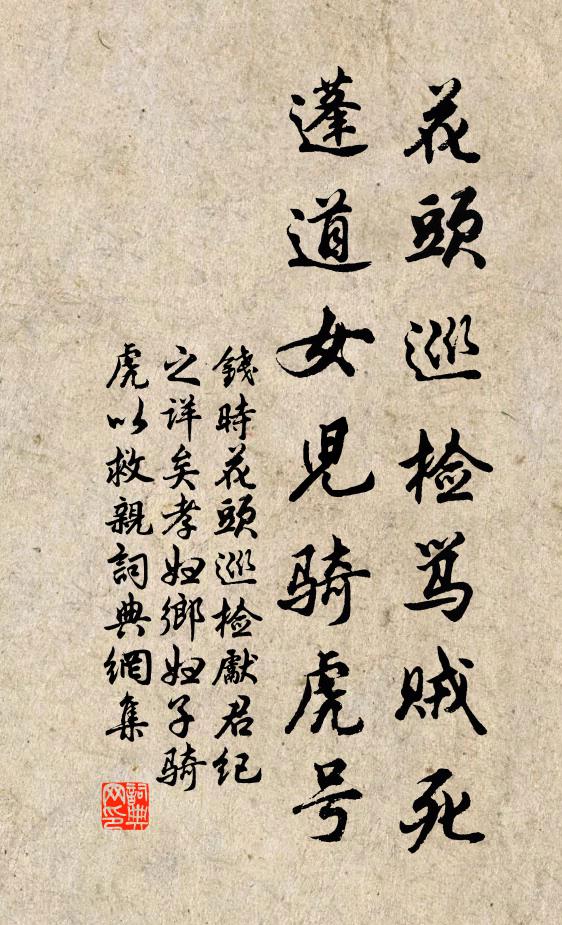 花頭巡檢罵賊死
蓬道女児騎虎号
錢時花頭巡檢獻君紀
之详矣孝妇鄉妇子骑
虎以救親詞典網集
詞典网印